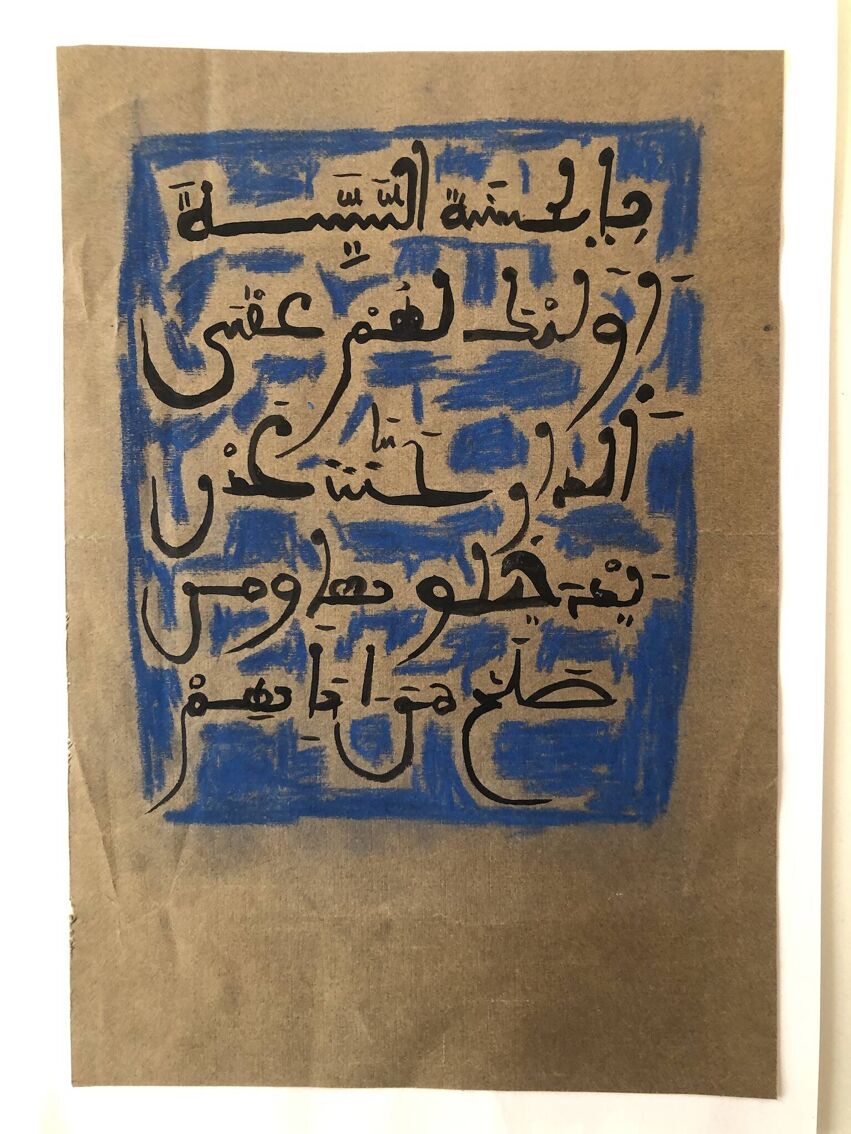 بالحسنة السَّيِّئَة
اولئك لهُمْ عقْبى
الدار جنت عدْن
يدخلونها ومن
صلح من ابايهمْ